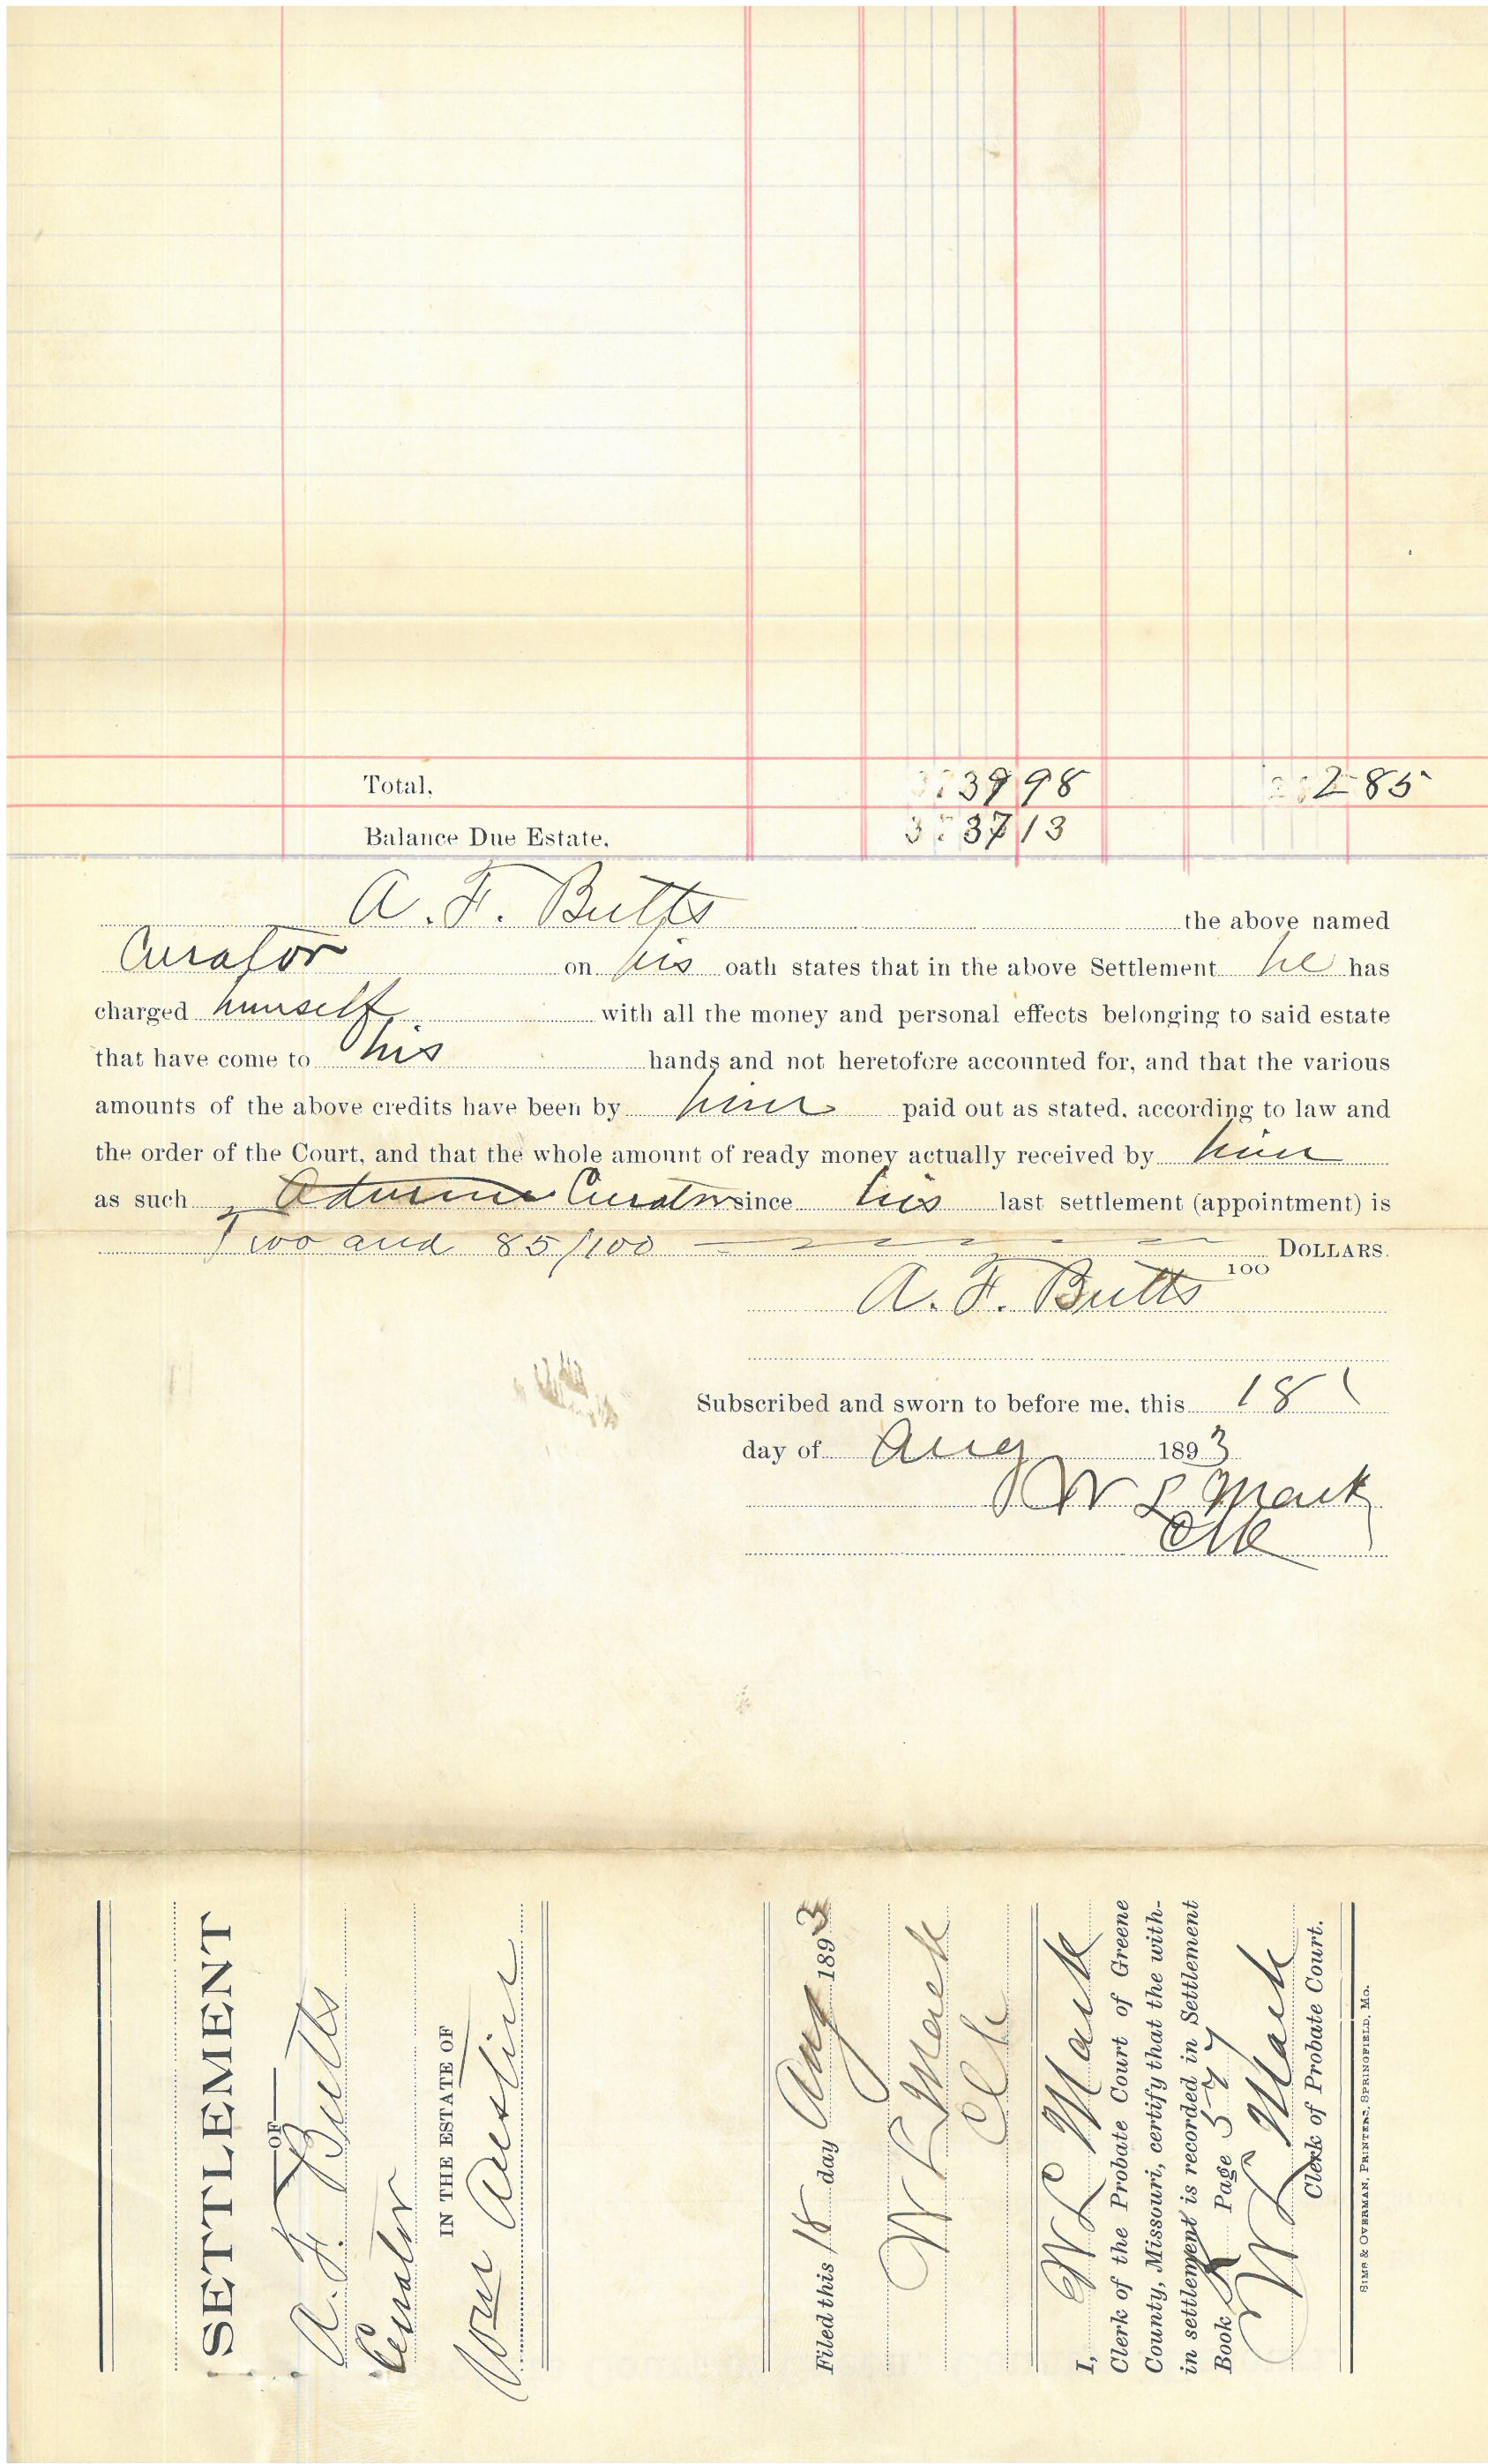 Total. 39 98 2 85
Balance Due Estate. 37 13
A. F. Butts the above named
Curator on his oath states that in the above Settlement he has
charged himself with all the money and personal effects belonging to said estate
that have come to his hands and not heretofore accounted for, and that the various
amounts of the above credits have been by him paid out as stated, according to law and
the order of the Court, and that the whole amount of ready money actually received by him
as such Curator since his last settlement (appointment) is
Two and 85/100 DOLLARS.
100
A. F. Butts
Subscribed and sworn to before me, this 18
day of Aug 1893
W L Mack
Clk
SETTLEMENT
OF
A. F. Butts
Curator
IN THE ESTATE OF
Austin
Filed this 18 day Aug 1893
W L Mack
Clk
I, W L Mack
Clerk of the Probate Court of Greene
County, Missouri, certify that the with-
in settlement is recorded in Settlement
Book Page 577
W L Mack
Clerk of Probate Court.
SIMS & OVERMAN, PRINTERS, SPRINGFIELD, MO.